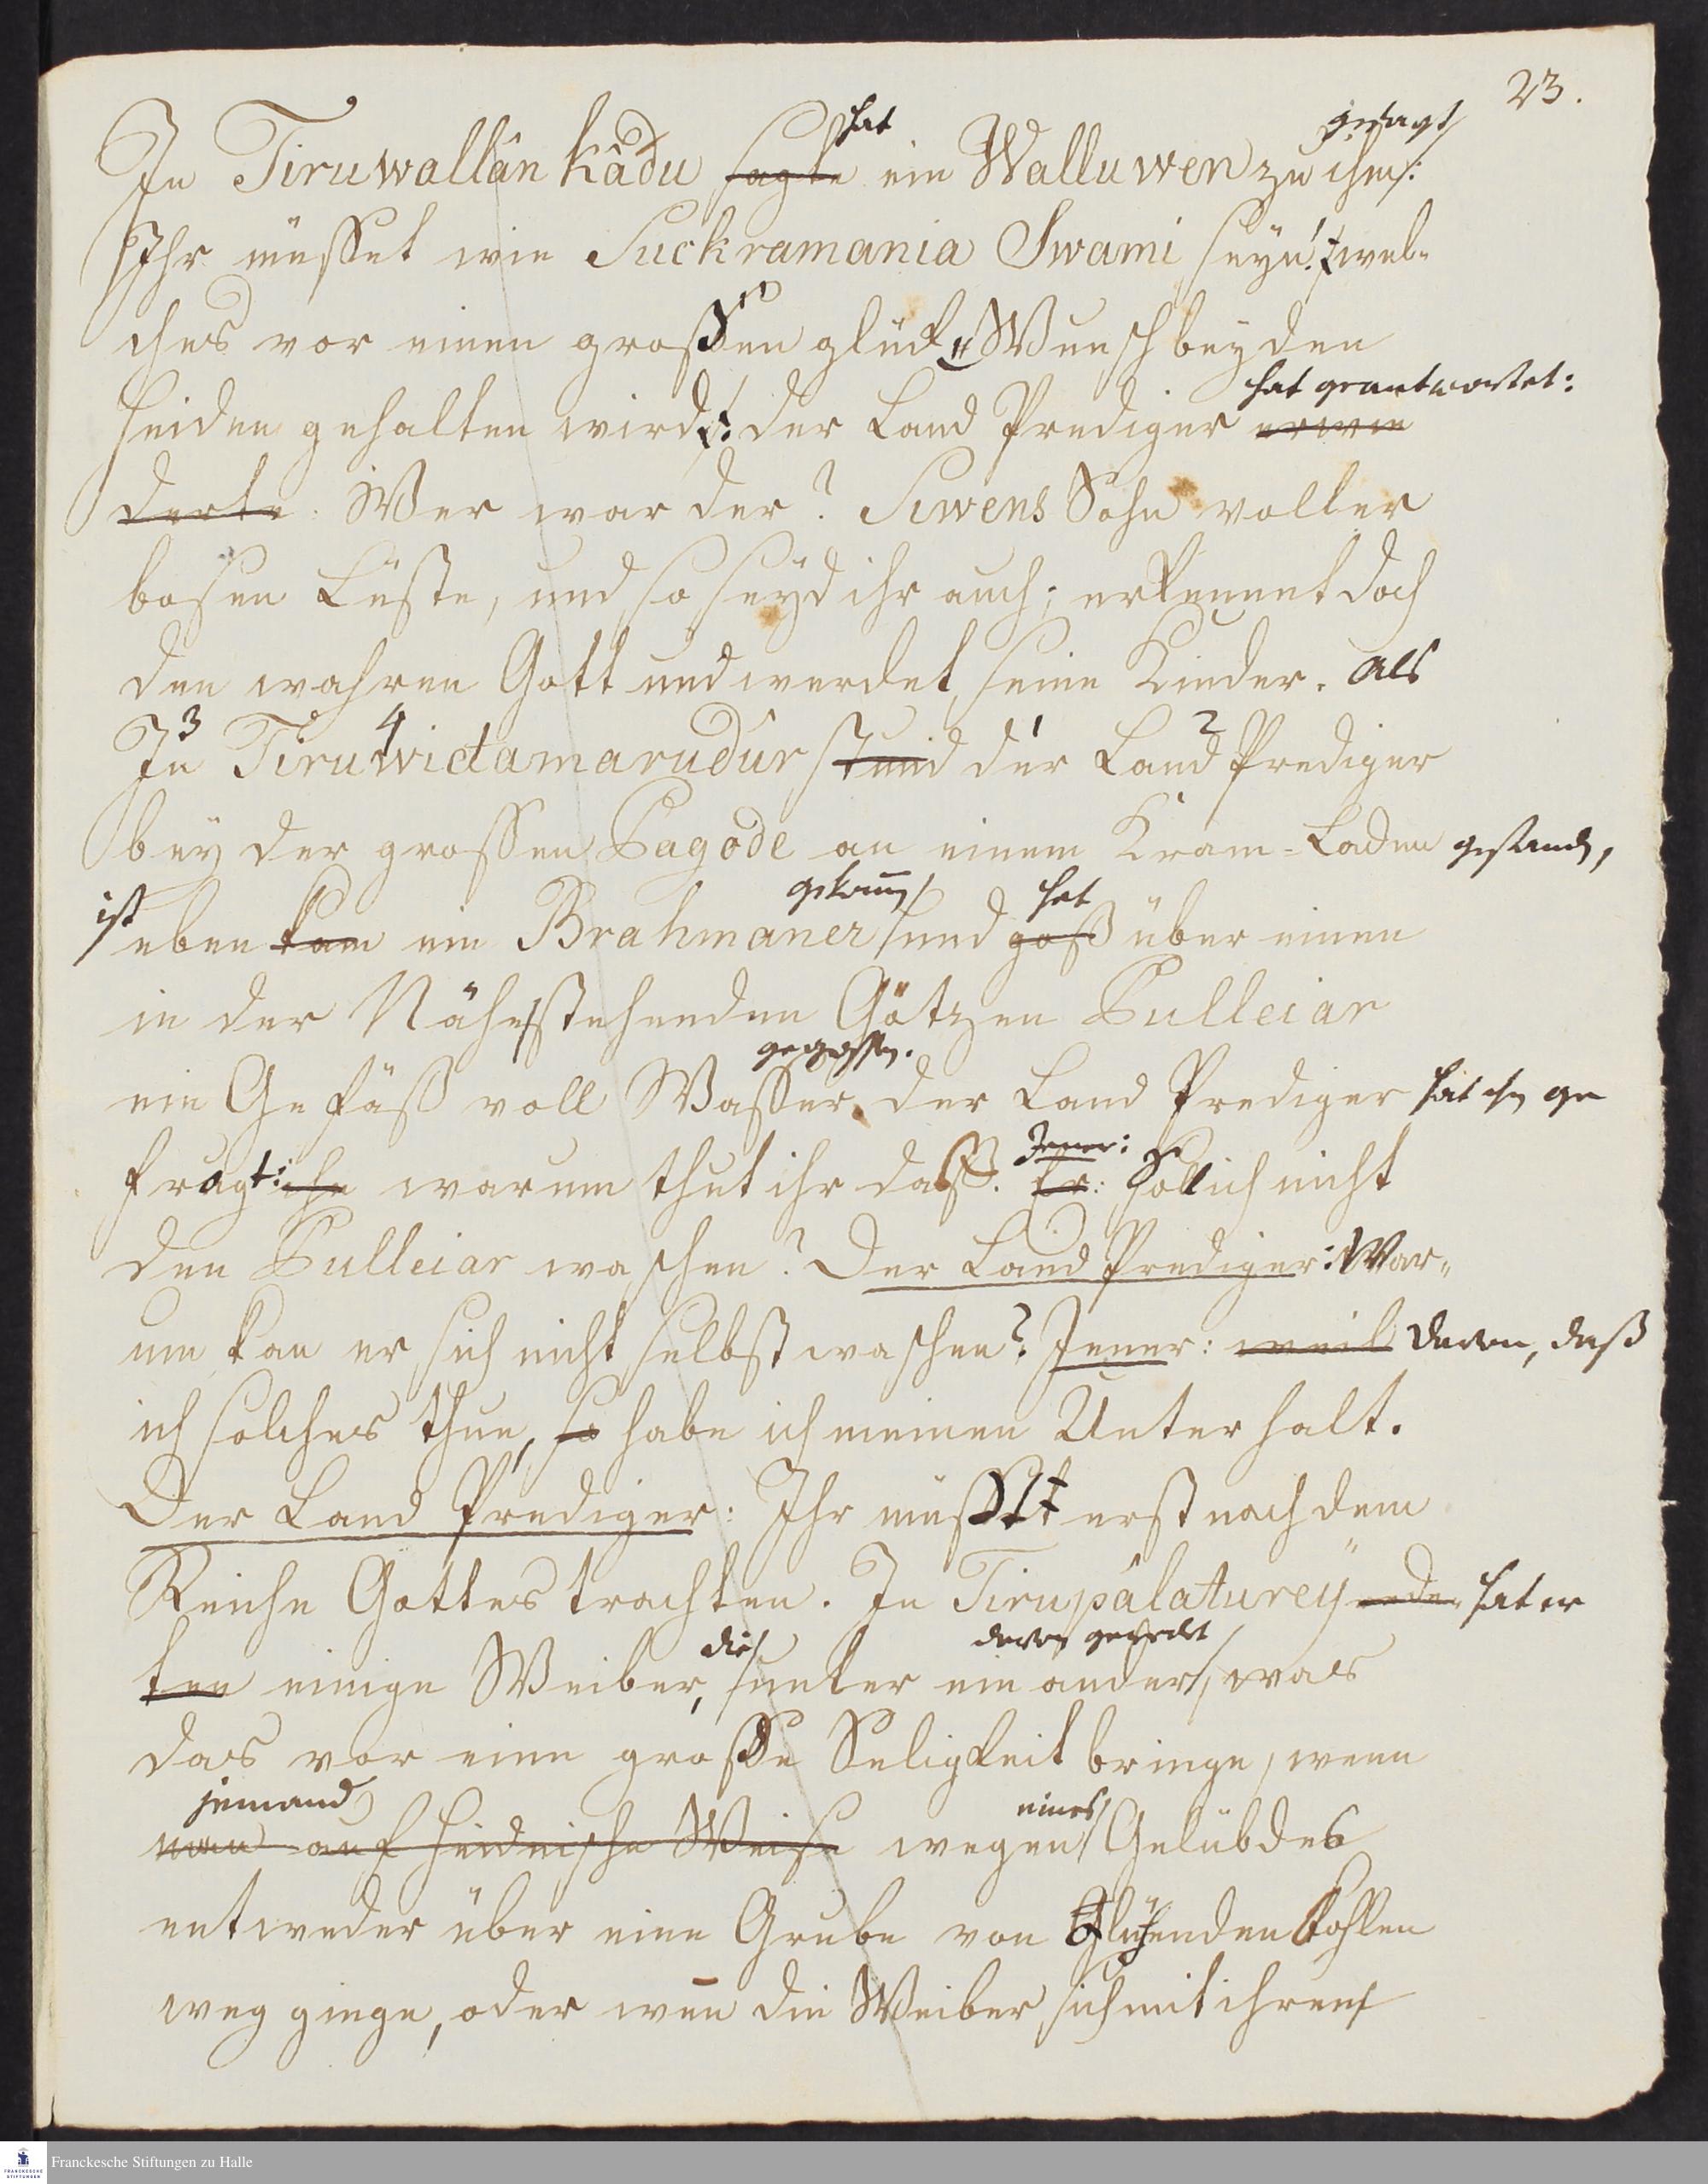 23.
In Tiruwallânkâdu sagte hat ein Walluwen zu ihm gesagt:
Ihr müsset wie Suckramania Swami seyn! welches
ches vor einen grossen glück Wunsch bey den
Heiden gehalten wird: der Land Prediger hat geantwortet: erwie
derte. Wer war der? Siwens Sohn voller
bösen Lüste, und so seyd ihr auch; erkennet doch
den wahren Gott und werdet seine Kinder. als
3 4 1 2
In Tiruwidamarudûr stund der Land Prediger
bey der grossen Pagode an einem Kram-Laden gestanden,
ist eben kam ein Brahmaner gekommen und hat goß über einen
in der Nähe stehenden Götzen Pulleiar
ein Gefäß voll Wasser gegossen. der Land Prediger hat ihn ge
fragt: ihn warum thut ihr daß. Er: Jener: Soll ich nicht
den Pulleiar waschen? Der Land Prediger: War-
um kan er sich nicht selbst waschen? Jener: weil davon, daß
ich solches thue, so habe ich meinen Unterhalt.
Der Land Prediger: Ihr müßt erst nach dem
Reiche Gottes trachten. In Tirupâlaturey rede- hat er
ten einige Weiber, die unter ein ander davon geredet, was
das vor eine grosse Seligkeit bringe, wenn
jemand man auf heidnische Weise wegen eines Gelübdes
entweder über eine Grube von Glühenden Kohlen
weg ginge, oder wen̄ die Weiber sich mit ihren
Franckesche Stiftungen zu Halle
FRANCKESCHE STIFTUNGEN